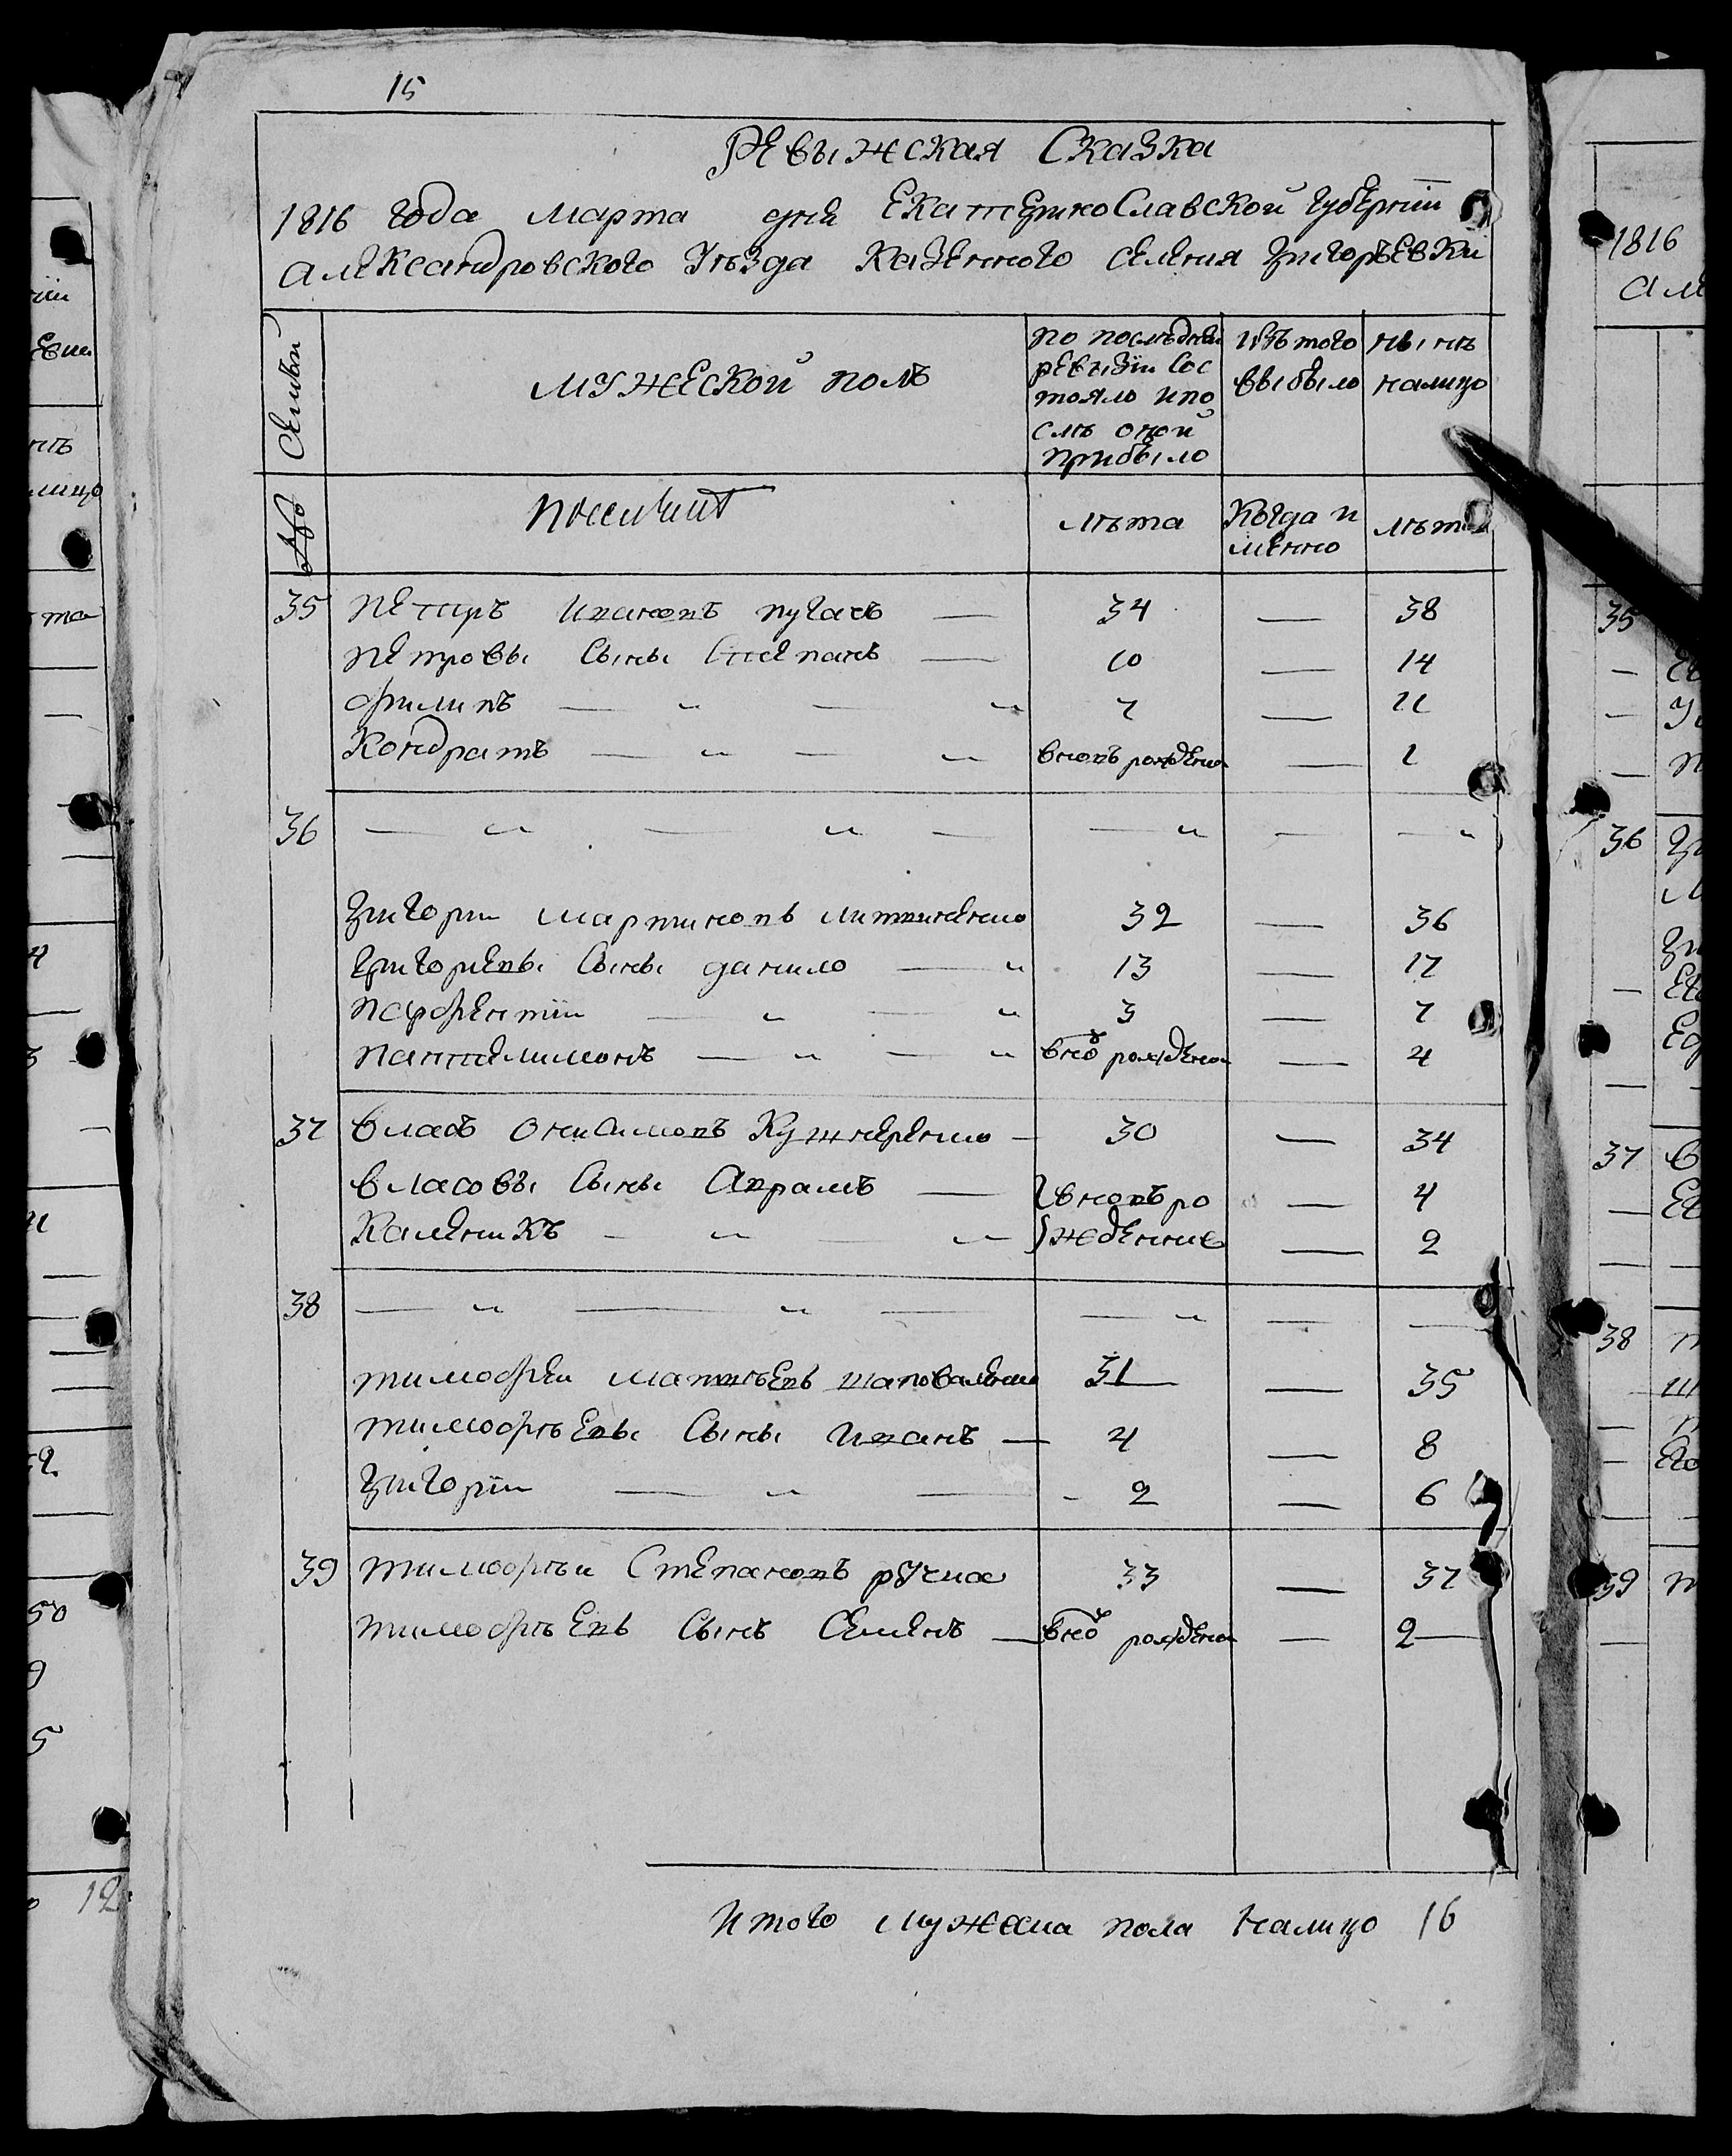 15
Ревыжская Сказка
1816 года марта дня Екатериносл​авской губернїи
александровского Уѣзда казенного селения Григорьевки
семьи
мужеской полъ
по последней
ревизїи Сос
тояло и по
слѣ оной
прибыло
изъ того
выбыло
нынѣ
налицо
№
лѣта
Когда и
менно
лѣта
35 Петръ ивановъ пугачъ — 34 — 38
Петровы Сыны Степанъ — 10 — 14
филипъ — „ — „ 7 — 11
Кондратъ — „ — „ вновъ рождена — 1
36 — „ — „ — — „ — — „
Григории мартиновъ литвиненко 32 — 36
Григориевы Сыны данило — „ 13 — 17
парфентии — „ — „ 3 — 7
панталимонъ — „ — „ вно рождена — 4
37 власъ онисимовъ Кушнеренко — 30 — 34
власовы Сыны Аврамъ — вновъ ро — 4
Каленикъ — „ — „ жденние — 2
38 — „ — „ — — „ — —
тимофеи матвѣевъ шаповаленко 31 — 35
тимофѣевы Сыны иванъ — 4 — 8
Григорїи — „ — 2 — 6
39 тимофѣи Степановъ ручка 33 — 37
тимофѣевъ Сынъ Семенъ — вно рождена — 2
Итого мужеска пола налицо 16
1816
35
36
37
38
39
12
50
5